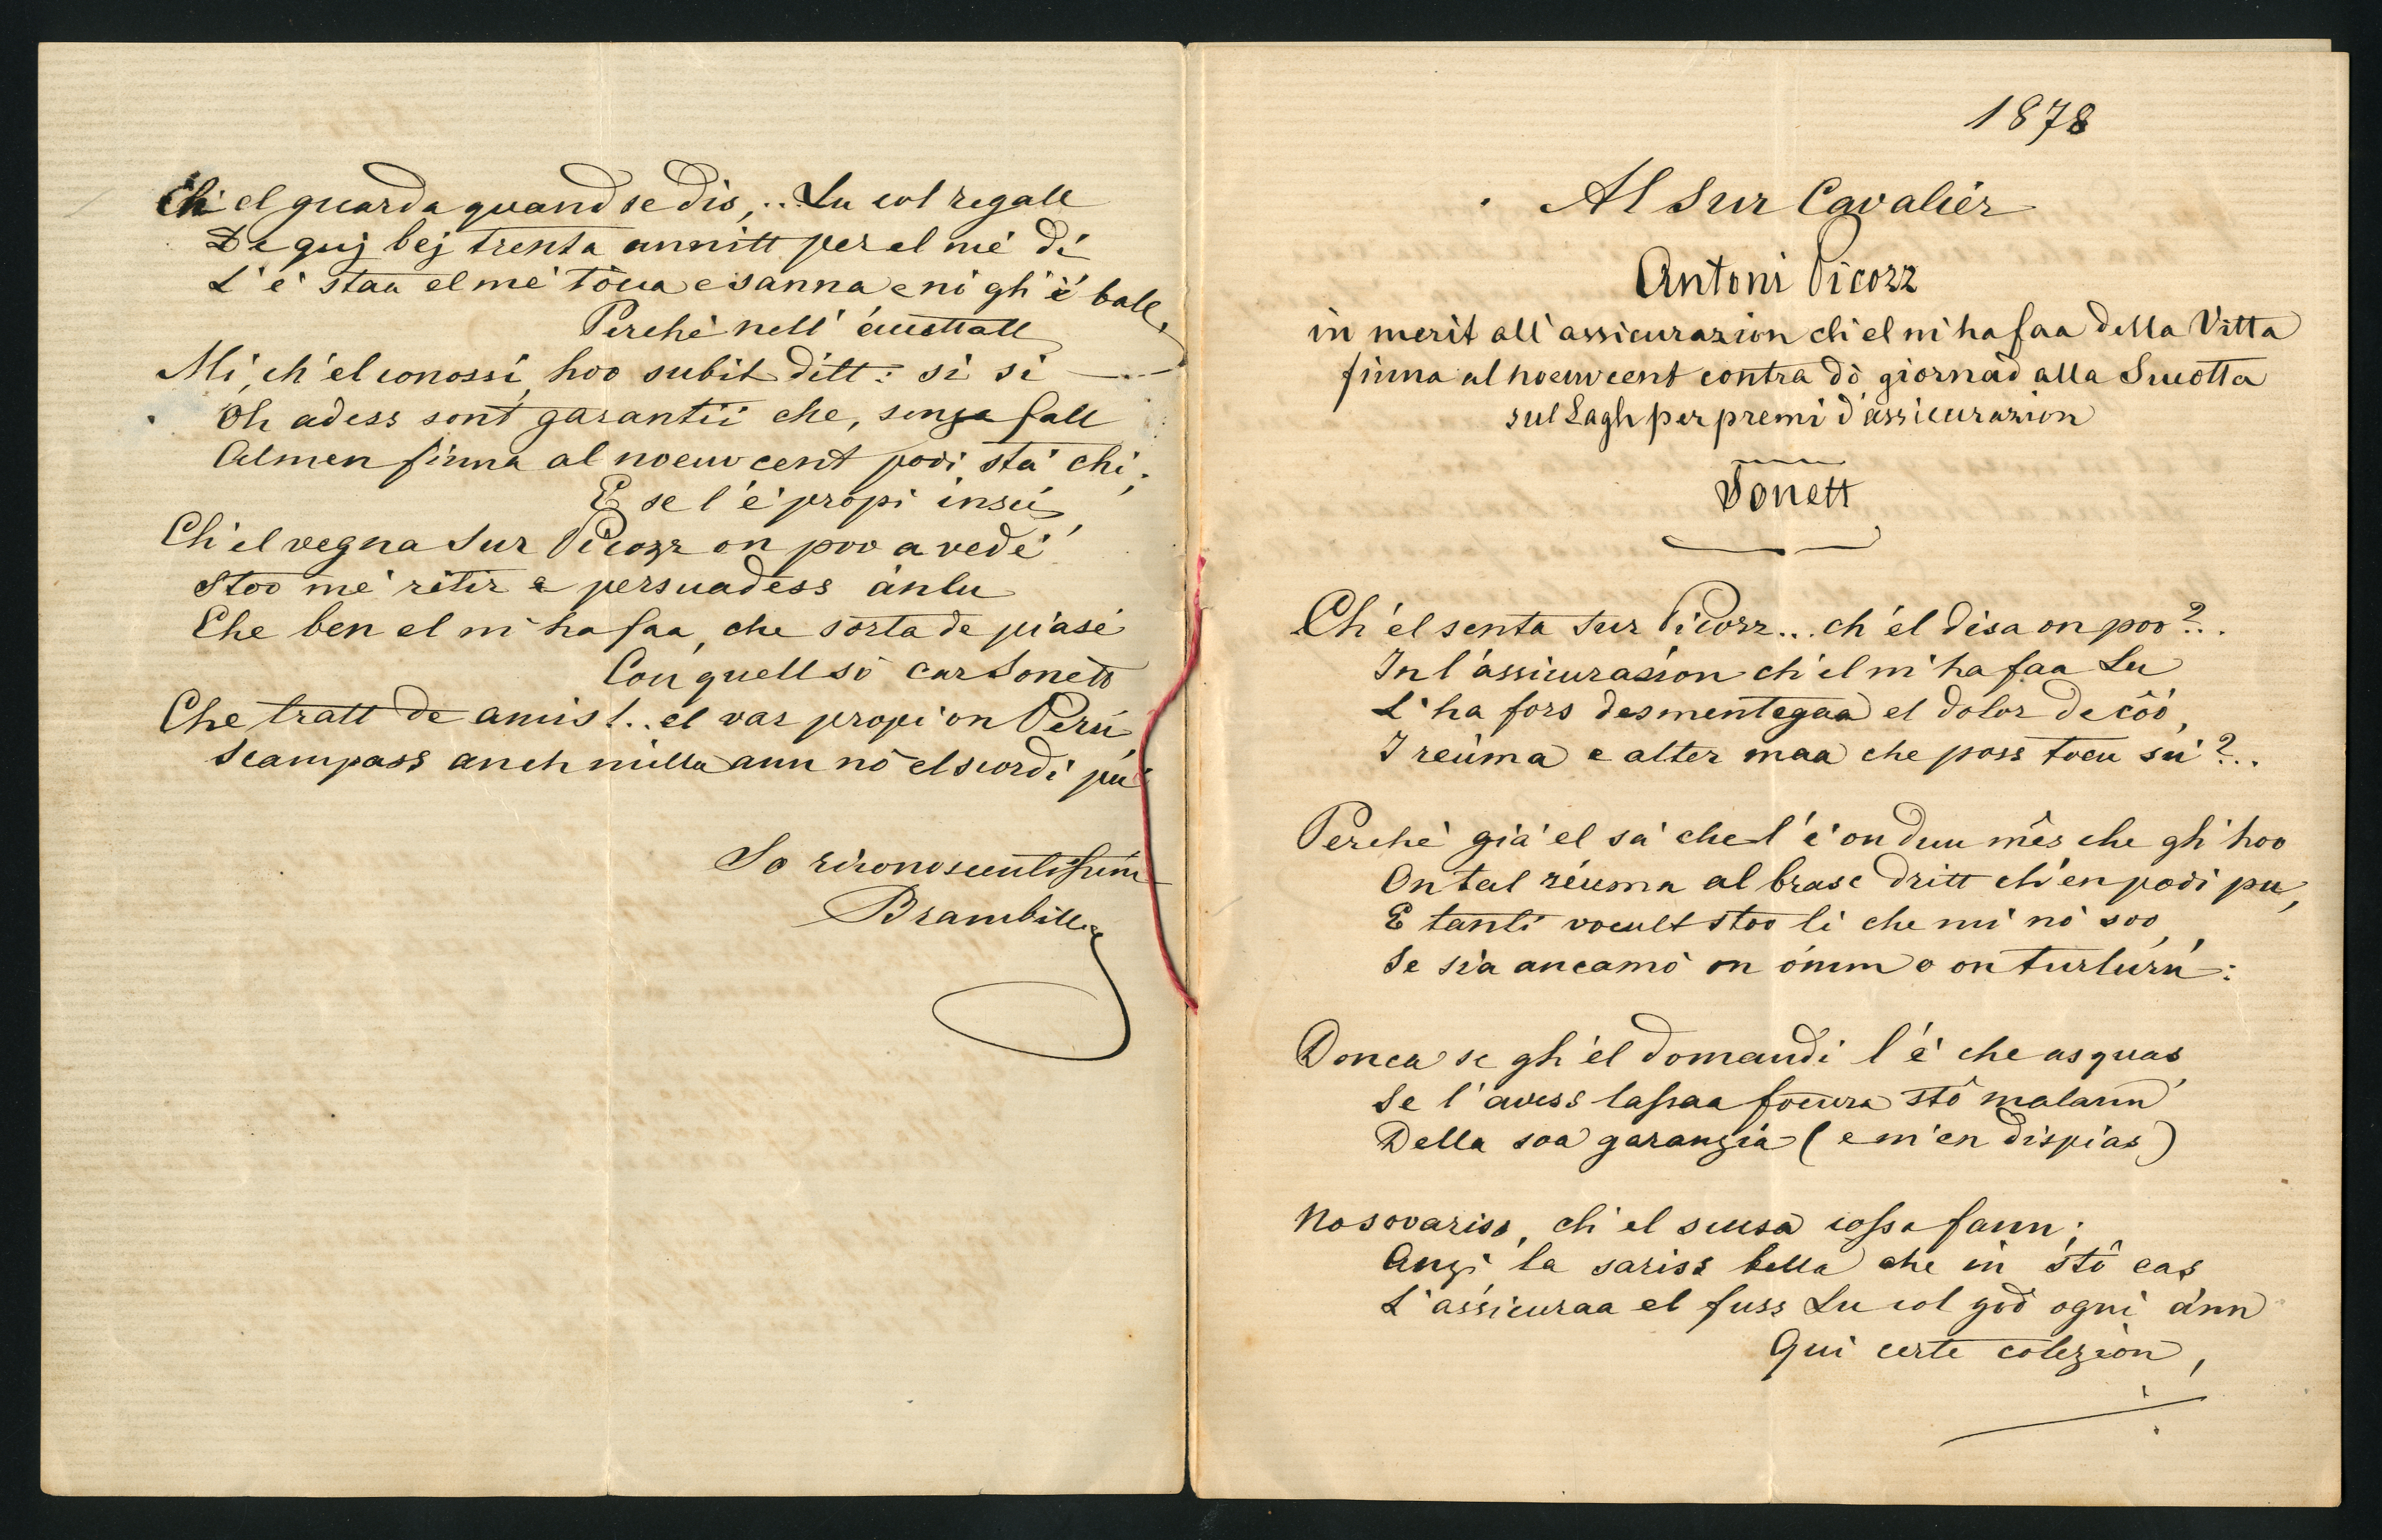 1878
Al Sur Cavalièr
Antoni Picozz
in merit all'assicurazion ch'el m'ha faa della Vitta
finna al noeuvcent contra dò giornad alla Sucotta
sul Lagh per premi d'assicurazion
Sonett
Ch'el senta Sur Picozz... ch'el disa on poo?..
In l'assicurazion ch'el m'ha faa Lu
L'ha fors desmentegaa el dolor de côô,
I reùma e alter maa che poss toeu sù?..
Perchè già el sa che l'è on duu mês che gh'hoo
On tal rèuma al brasc dritt ch'en podi pu,
E tanti voeult stoo lì che mi nò soo,
Se sia ancamò on òmm o on turlurù:
Donca se gh'el domandi l'è che asquas
Se l'avess lassaa foeura stô malann
Della soa garanzia (e m'en dispias)
No sovariss, ch'el scusa cossa fann;
Anzi la sariss bella che in stô cas
L'assicuraa el fuss Lu col gòd ogni ann
Qui certe colezion,
./.
Ch'el guarda quand se dis,.. Lu col regall
De quij bej trenta annitt per el mè dì
L'è staa el mè tòcca e sanna e nò gh'è ball,
Perchè nell' áuscttall
Mi, ch'el conossi, hoo subit ditt: sì sì
Oh adess sont garantii che, senza fall
Almen finna al noeuvcent podi stà chì;
E se l'è propi insci
Ch'el vegna Sur Picozz on poo a vedè
Stoo mè ritir e persuadess ànlu
Che ben el m'ha faa, che sorta de piasè
Con quell sò car Sonett
Che tratt de amis!.. el var propi on Perù,
Scampass anch milla ann nò el scordi pù
So riconoscentissim
Brambilla